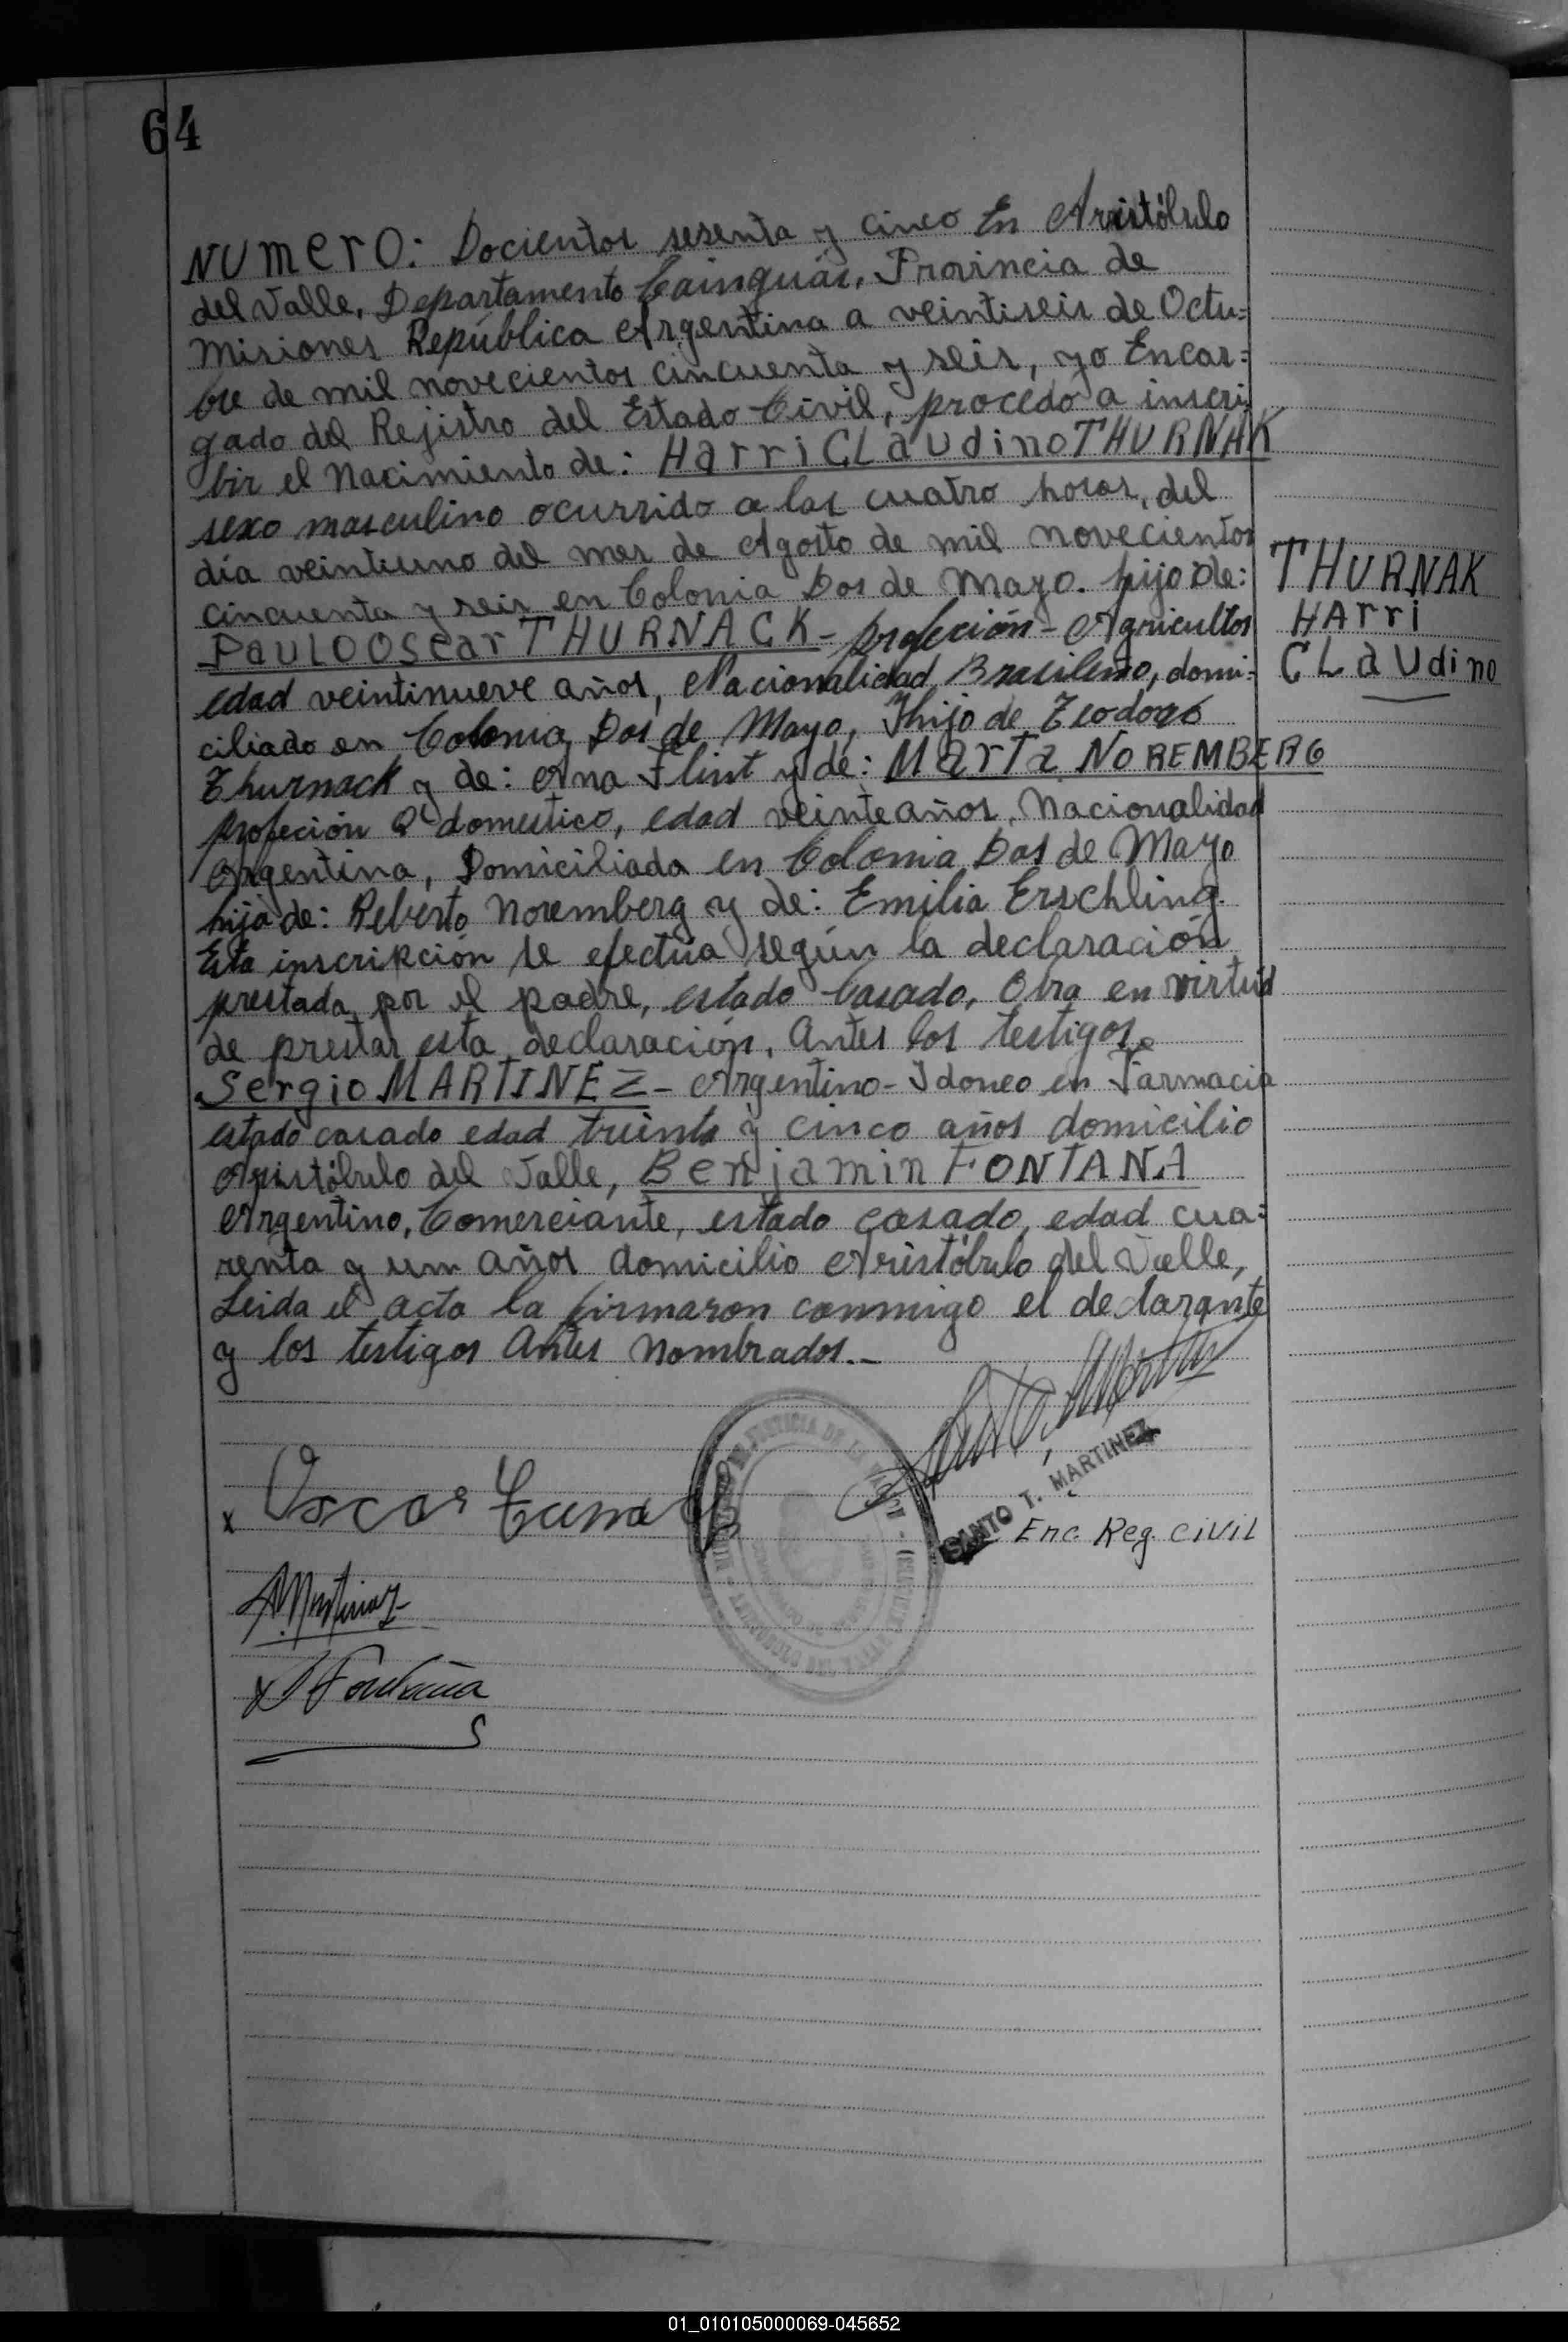 64
NUMERO: Docientos sesenta y cinco En Aristóbulo
del Valle, Departamento Cainguás, Provincia de
Misiones República Argentina a veintiseis de Octu=
bre de mil novecientos cincuenta y seis, yo Encar=
gado del Rejistro del Estado Civil, procedo a inscri
bir el Nacimiento de: Harri CLaudino THURNAK
sexo masculino ocurrido a las cuatro horas, del
día veintiuno del mes de Agosto de mil novecientos
cincuenta y seis en Colonia Dos de Mayo. hijo de:
PauLO OScar THURNACK - profeción - Agricultor
edad veintinueve años, Nacionalidad Brasileño, domi=
ciliado en Colonia Dos de Mayo, Ihijo de Teodoro
Thurnack y de: Ana Flint y de: Marta NOREMBERG
profeción Q. domestico, edad veinte años, Nacionalidad
Argentina, Domiciliada en Colonia Dos de Mayo
hija de: Reberto Noremberg y de: Emilia Erschling.
Esta inscripción se efectúa según la declaración
prestada por el padre, estado Casado, Obra en virtud
de prestar esta declaración, Antes los testigos
Sergio MARTINEZ - Argentino - Idoneo en Farmacia
estado casado edad treinta y cinco años domicilio
Aristóbulo del Valle, Benjamin FONTANA
Argentino, Comerciante, estado casado, edad cua=
renta y um años domicilio Aristóbulo del Valle,
Leida el acta la firmaron conmigo el declarante
y los testigos Antes Nombrados.-
THURNAK
HArri
CLaUdino
x Oscar
SANTO T. MARTINEZ
Enc. Reg. Civil
Martinez
x Fontana
01_010105000069-045652